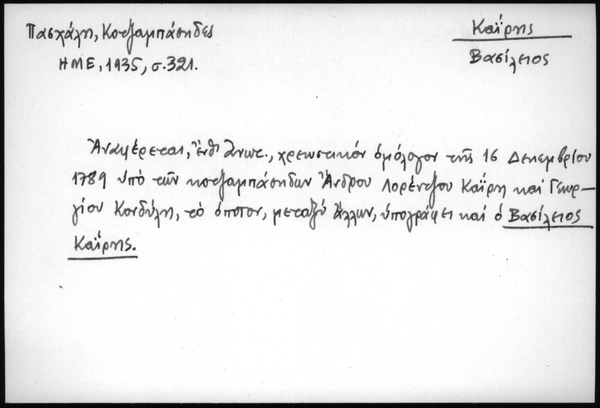 Πασχάλη, Κοτζαμπάσηδες
ΗΜΕ, 1935, σ. 321.
Καΐρης
Βασίλειος
Ἀναφέρεται, ἔνθ' ἀνωτ., χρεωστικόν ὁμόλογον τῆς 16 Δεκεμβρίου
1789 ὑπό τῶν κοτζαμπάσηδων Ἄνδρου Λορέντζου Καΐρη καί Γεωρ-
γίου Κονδύλη, τό ὁποῖον, μεταξύ ἄλλων, ὑπογράφει καί ὁ Βασίλειος
Καΐρης.